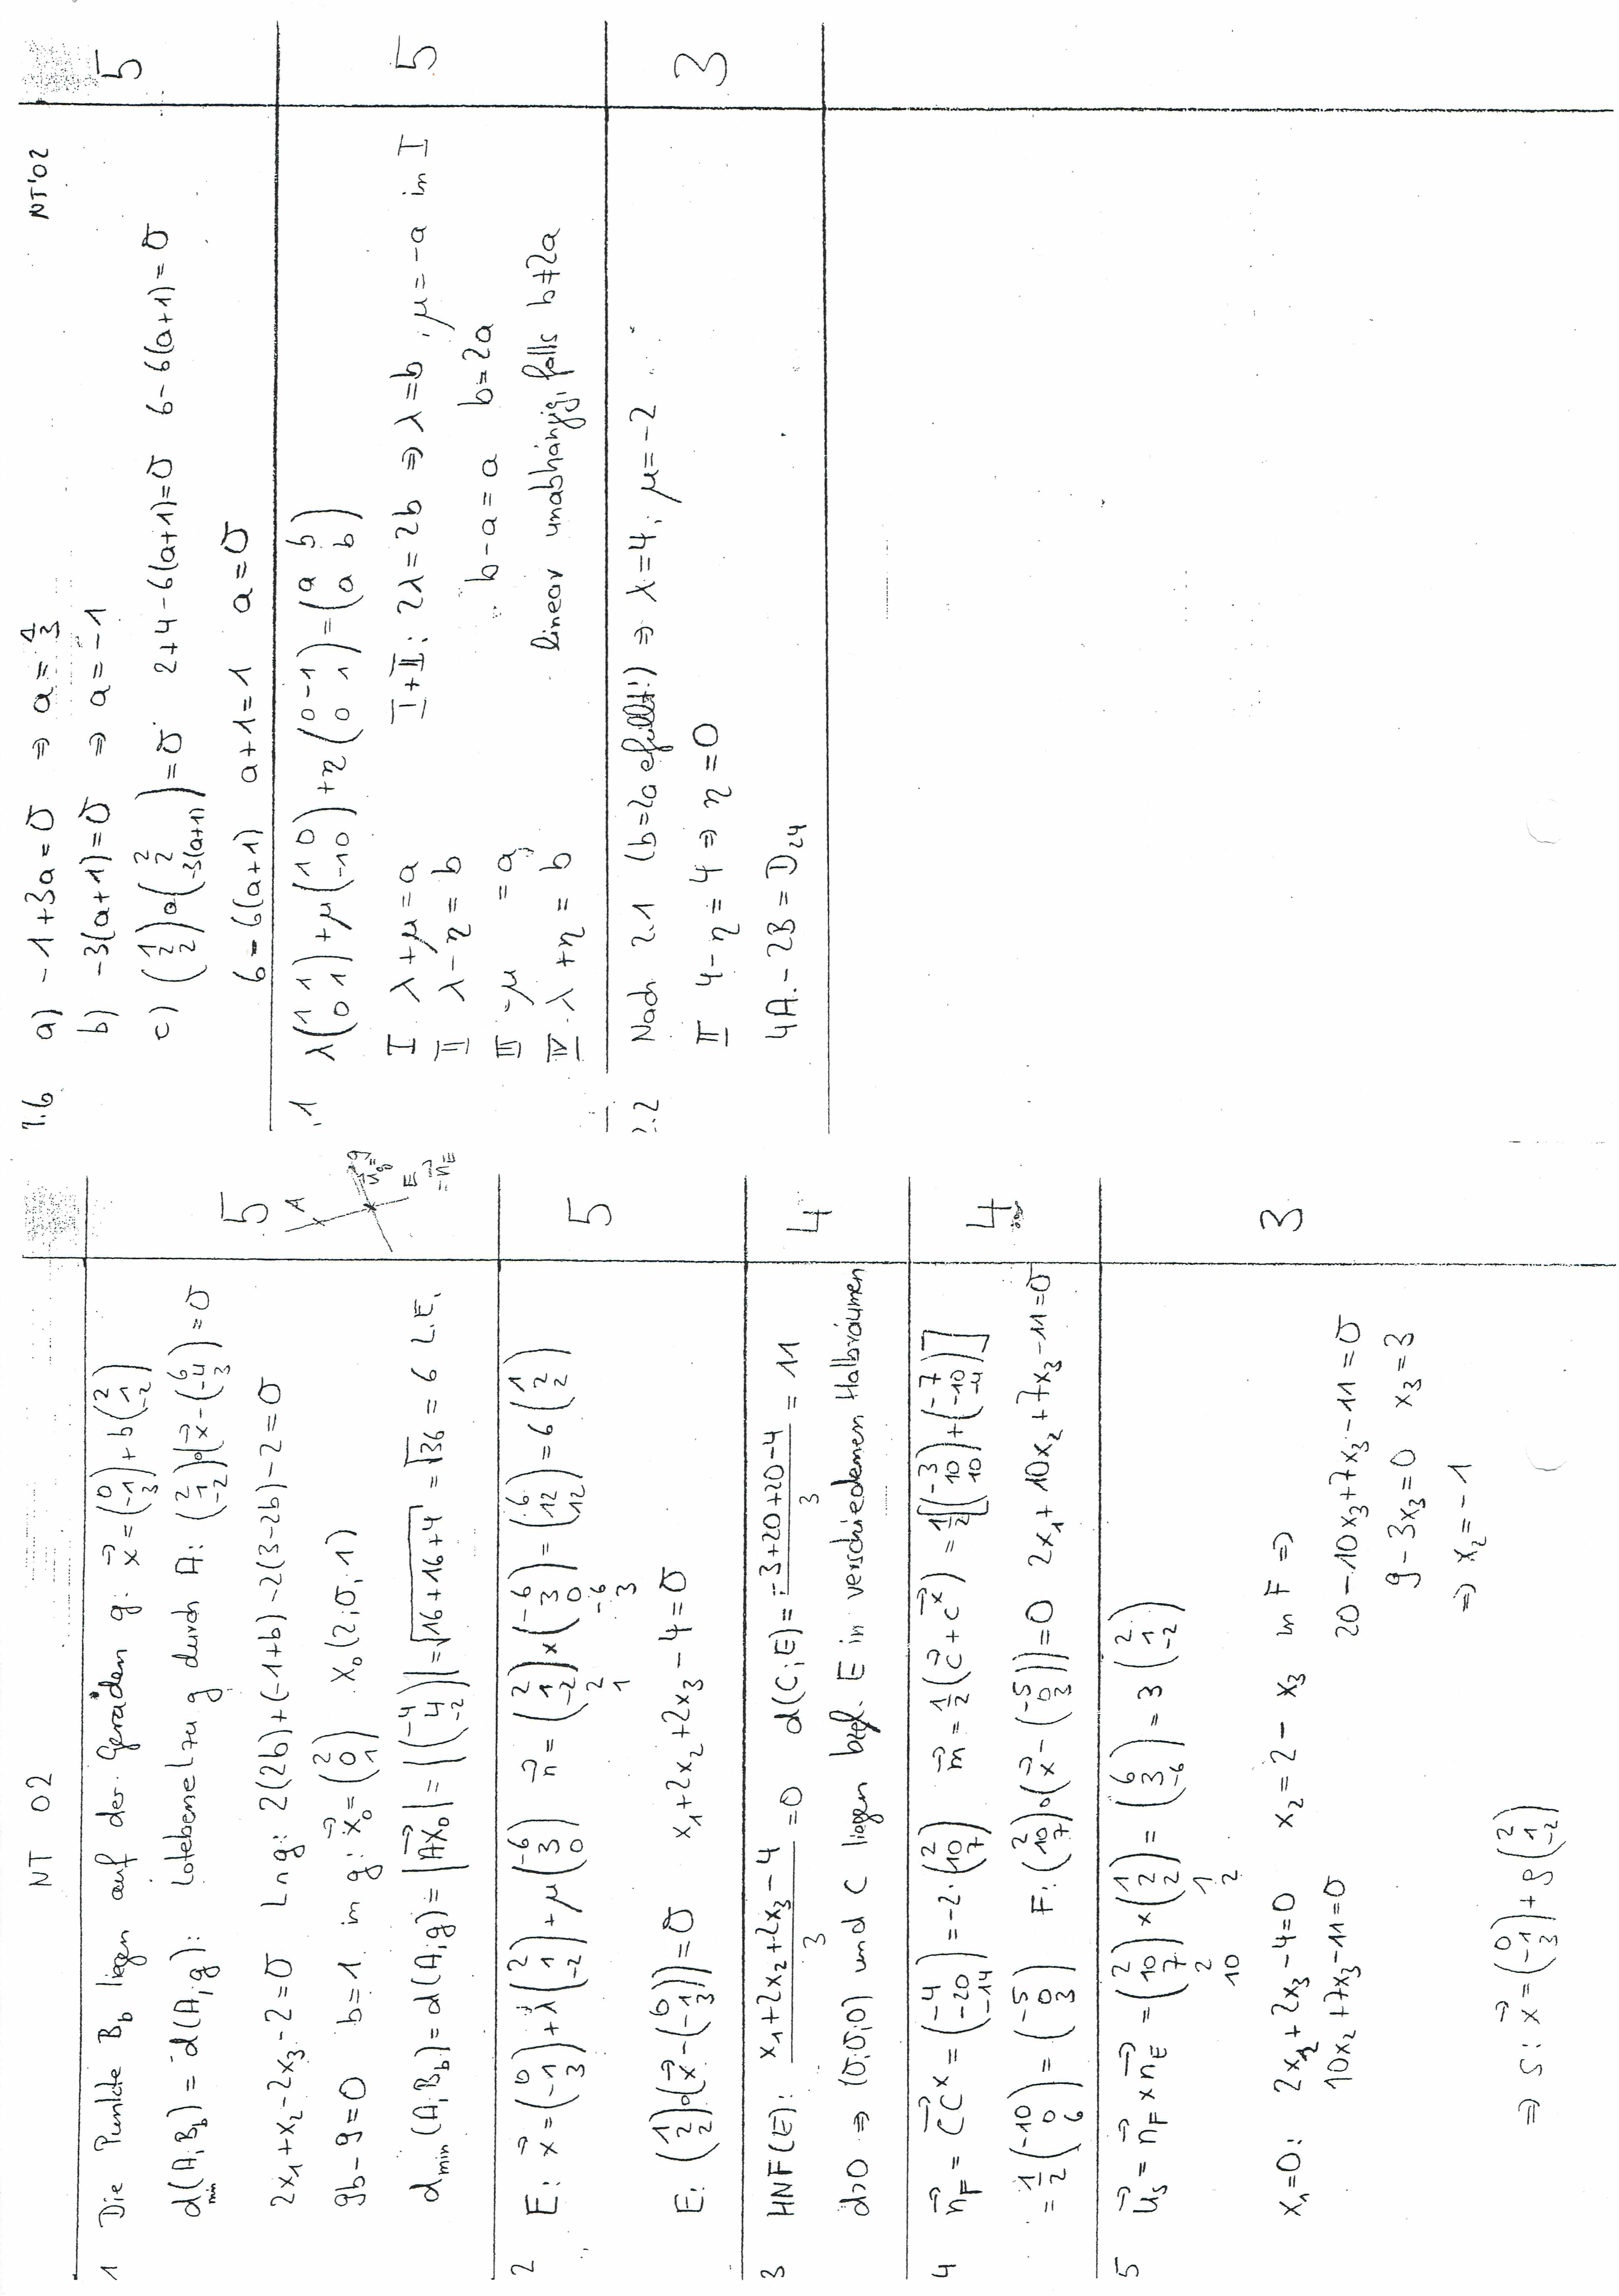 NT 02
1 Die Punkte B_b liegen auf der Geraden g: x⃗ = (0; -1; 3) + b(2; 1; -2)
5
d_min(A; B_b) = d(A; g): Lotebene L zu g durch A: (2; 1; -2)∘(x⃗ - (6; -4; 3)) = 0
2x₁ + x₂ - 2x₃ - 2 = 0 L∩g: 2(2b) + (-1+b) - 2(3-2b) - 2 = 0
9b - 9 = 0 b = 1 in g: x⃗₀ = (2; 0; 1) X₀(2; 0; 1)
d_min(A; B_b) = d(A; g) = |AX₀⃗| = |(-4; 4; -2)| = √(16+16+4) = √36 = 6 L.E.
2 E: x⃗ = (0; -1; 3) + λ(2; 1; -2) + μ(-6; 3; 0) n⃗ = (2; 1; -2) × (-6; 3; 0) = (6; 12; 12) = 6(1; 2; 2)
2 -6
1 3
5
E: (1; 2; 2)∘(x⃗ - (0; -1; 3)) = 0 x₁ + 2x₂ + 2x₃ - 4 = 0
3 HNF(E): (x₁ + 2x₂ + 2x₃ - 4)/3 = 0 d(C; E) = (-3+20+20-4)/3 = 11
4
d>0 ⇒ (0; 0; 0) und C liegen bzgl. E in verschiedenen Halbräumen
4 n⃗_F = CC^x⃗ = (-4; -20; -14) = -2·(2; 10; 7) m⃗ = ½(c⃗ + c⃗^x) = ½[(-3; 10; 10) + (-7; -10; -4)]
4
= ½(-10; 0; 6) = (-5; 0; 3) F: (2; 10; 7)∘(x⃗ - (-5; 0; 3)) = 0 2x₁ + 10x₂ + 7x₃ - 11 = 0
5 u⃗_s = n⃗_F × n⃗_E = (2; 10; 7) × (1; 2; 2) = (6; 3; -6) = 3(2; 1; -2)
2 1
10 2
3
x₁ = 0: 2x₂ + 2x₃ - 4 = 0 x₂ = 2 - x₃ in F ⇒
10x₂ + 7x₃ - 11 = 0 20 - 10x₃ + 7x₃ - 11 = 0
9 - 3x₃ = 0 x₃ = 3
⇒ x₂ = -1
⇒ s: x⃗ = (0; -1; 3) + ρ(2; 1; -2)
NT'02
1.6 a) -1 + 3a = 0 ⇒ a = 1/3
5
b) -3(a+1) = 0 ⇒ a = -1
c) (1; 2; 2)∘(2; 2; -3(a+1)) = 0 2+4-6(a+1) = 0 6-6(a+1) = 0
6 = 6(a+1) a+1 = 1 a = 0
.1 λ(1 1; 0 1) + μ(1 0; -1 0) + η(0 -1; 0 1) = (a b; a b)
5
I λ + μ = a I+II: 2λ = 2b ⇒ λ = b, μ = -a in I
II λ - η = b b - a = a b = 2a
III -μ = a
IV λ + η = b linear unabhängig, falls b ≠ 2a
2.2 Nach 2.1 (b=2a erfüllt!) ⇒ λ = 4; μ = -2
3
II 4 - η = 4 ⇒ η = 0
4A - 2B = D₂₄